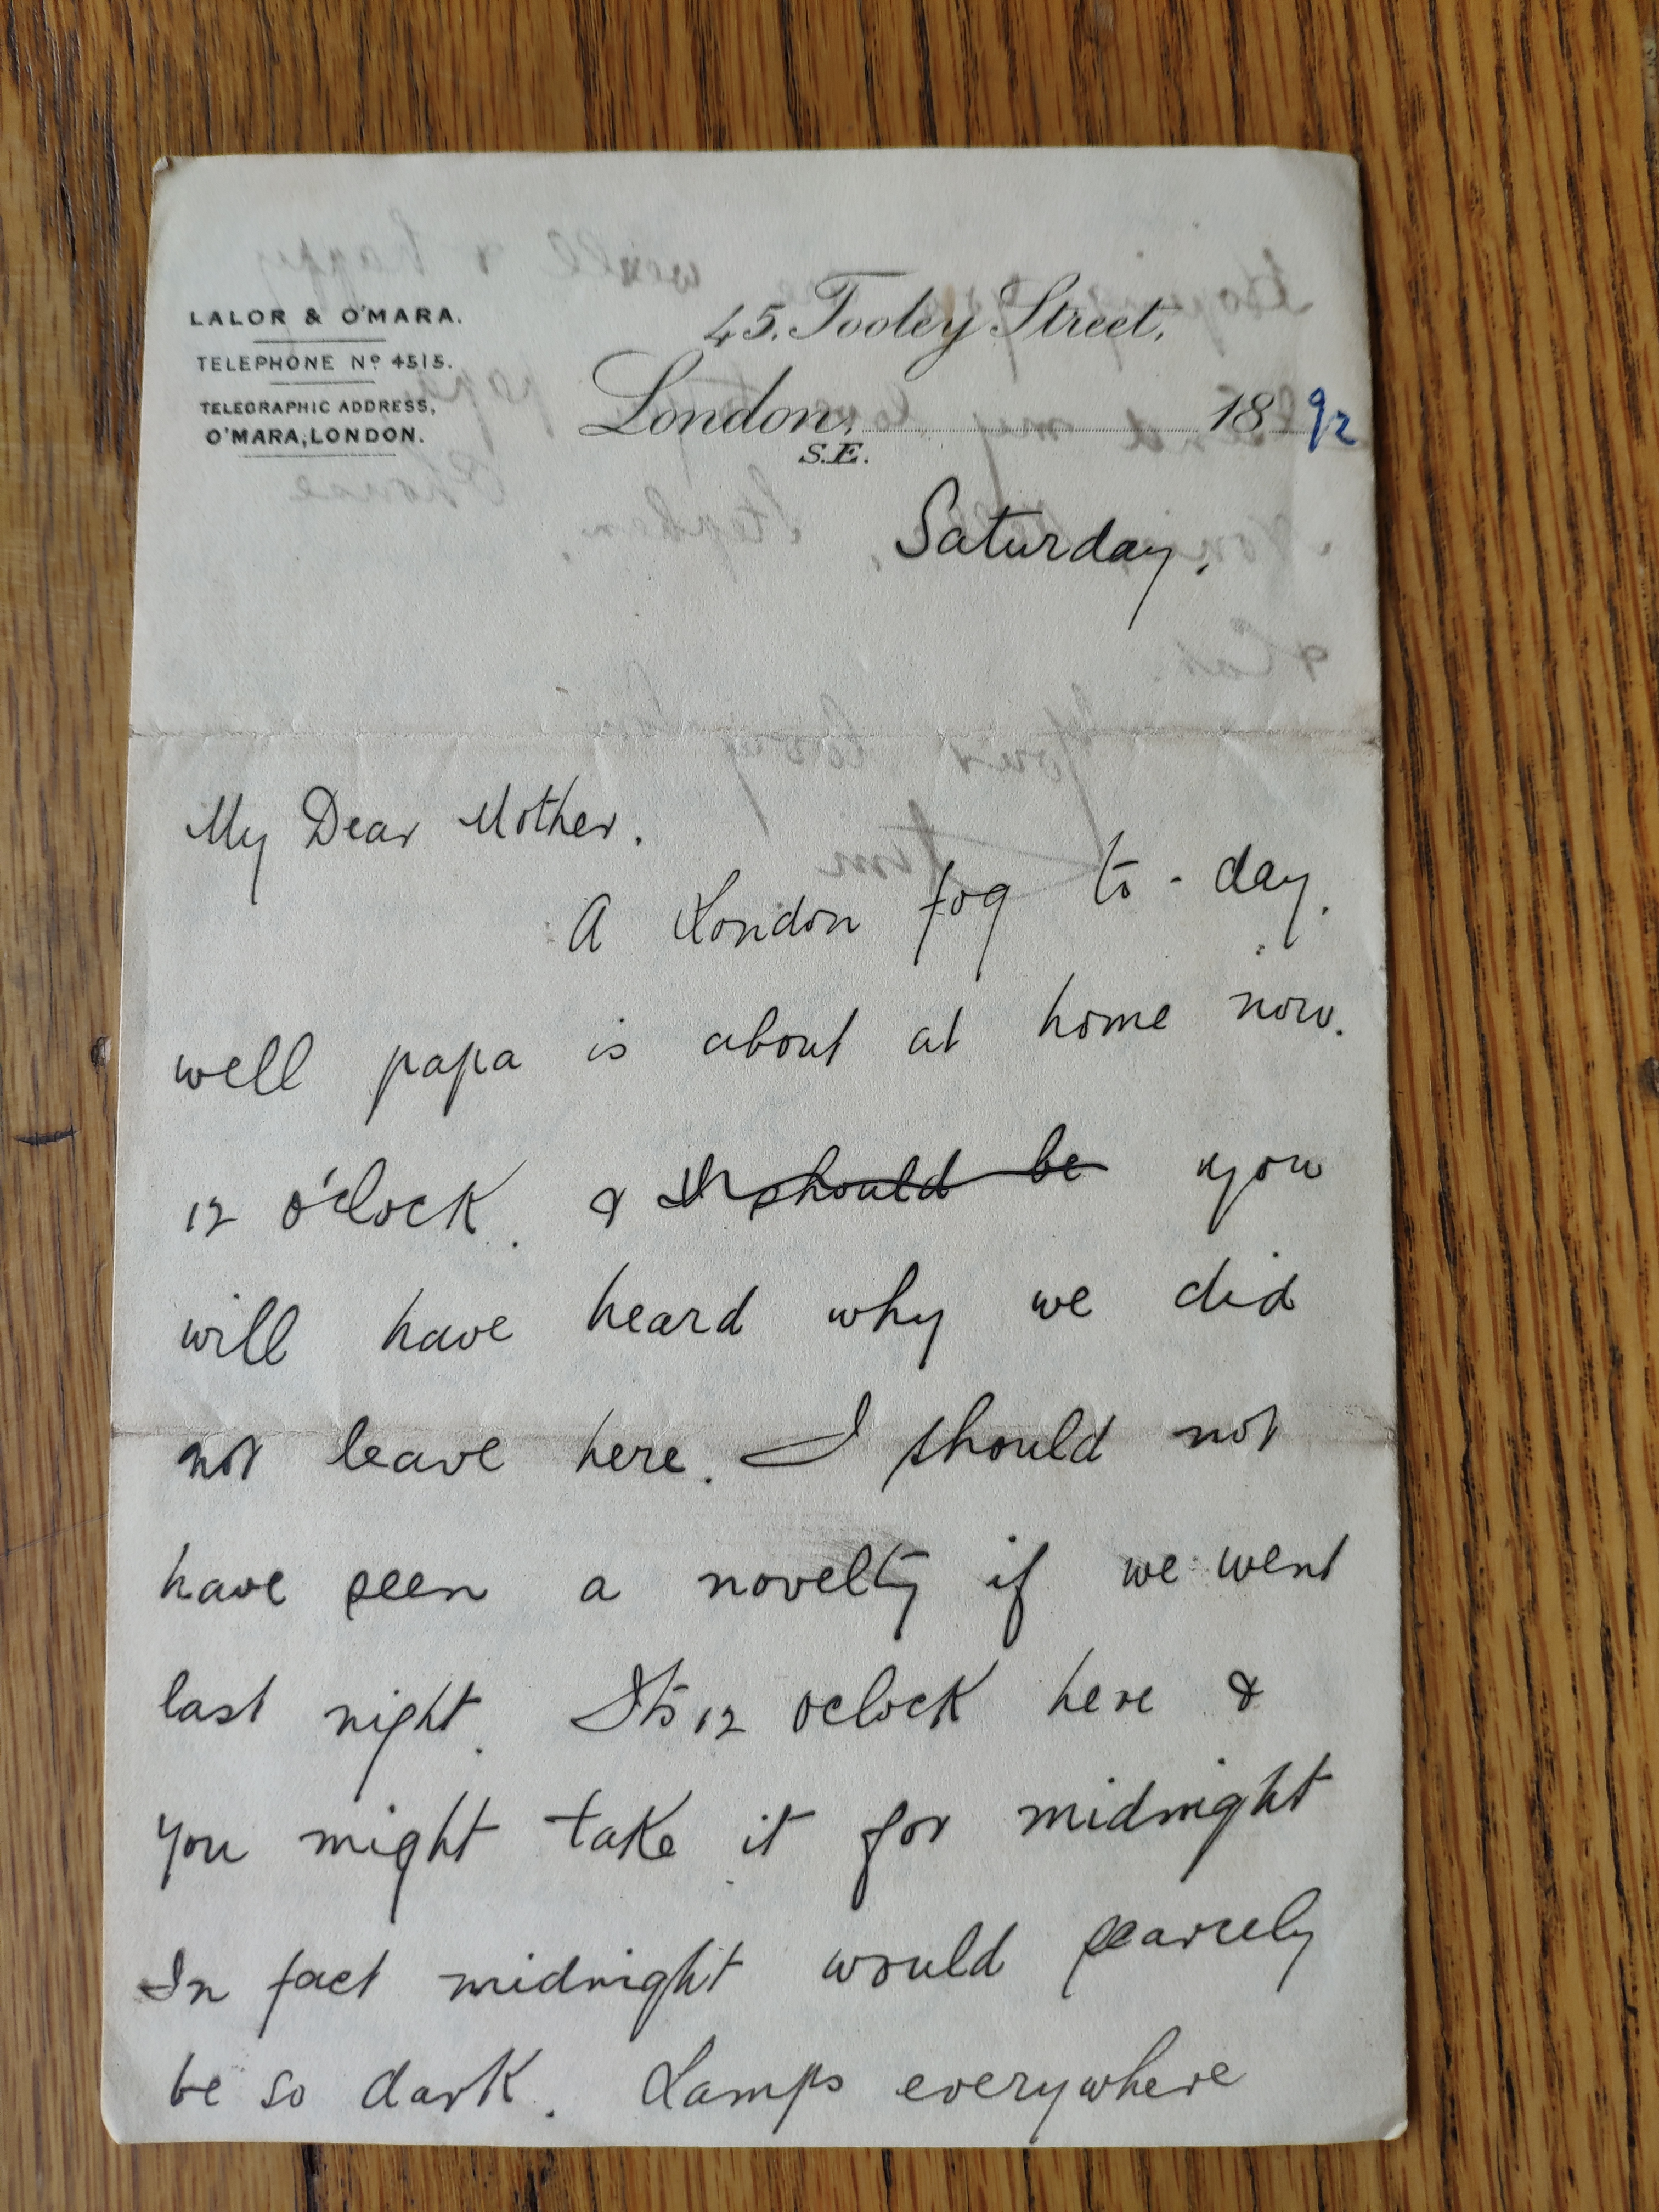 LALOR & O'MARA.
TELEPHONE Nº 4515.
TELEGRAPHIC ADDRESS,
O'MARA, LONDON.
45. Tooley Street,
London, 1892
S.E.
Saturday.
My Dear Mother.
A London fog to-day.
well papa is about at home now.
12 o'clock. & I should be you
will have heard why we did
not leave here. I should not
have seen a novelty if we went
last night. Its 12 oclock here &
you might take it for midnight
In fact midnight would scarcely
be so dark. Lamps everywhere